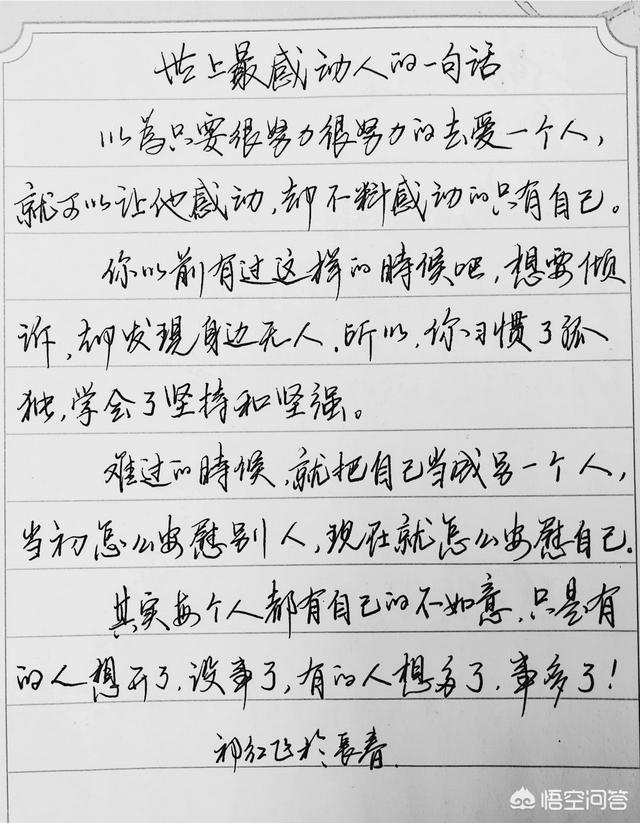 世上最感动人的一句话
以為只要很努力很努力的去爱一个人，
就可以让他感动，却不料感动的只有自己。
你以前有过这样的時候吧，想要倾
诉，却发現身边无人．所以，你习惯了孤
独，学会了坚持和坚强。
难过的時候，就把自己当成另一个人，
当初怎么安慰别人，现在就怎么安慰自己．
其实每个人都有自己的不如意，只是有
的人想开了，没事了，有的人想多了，事多了！
祁红飞於長春．
悟空问答